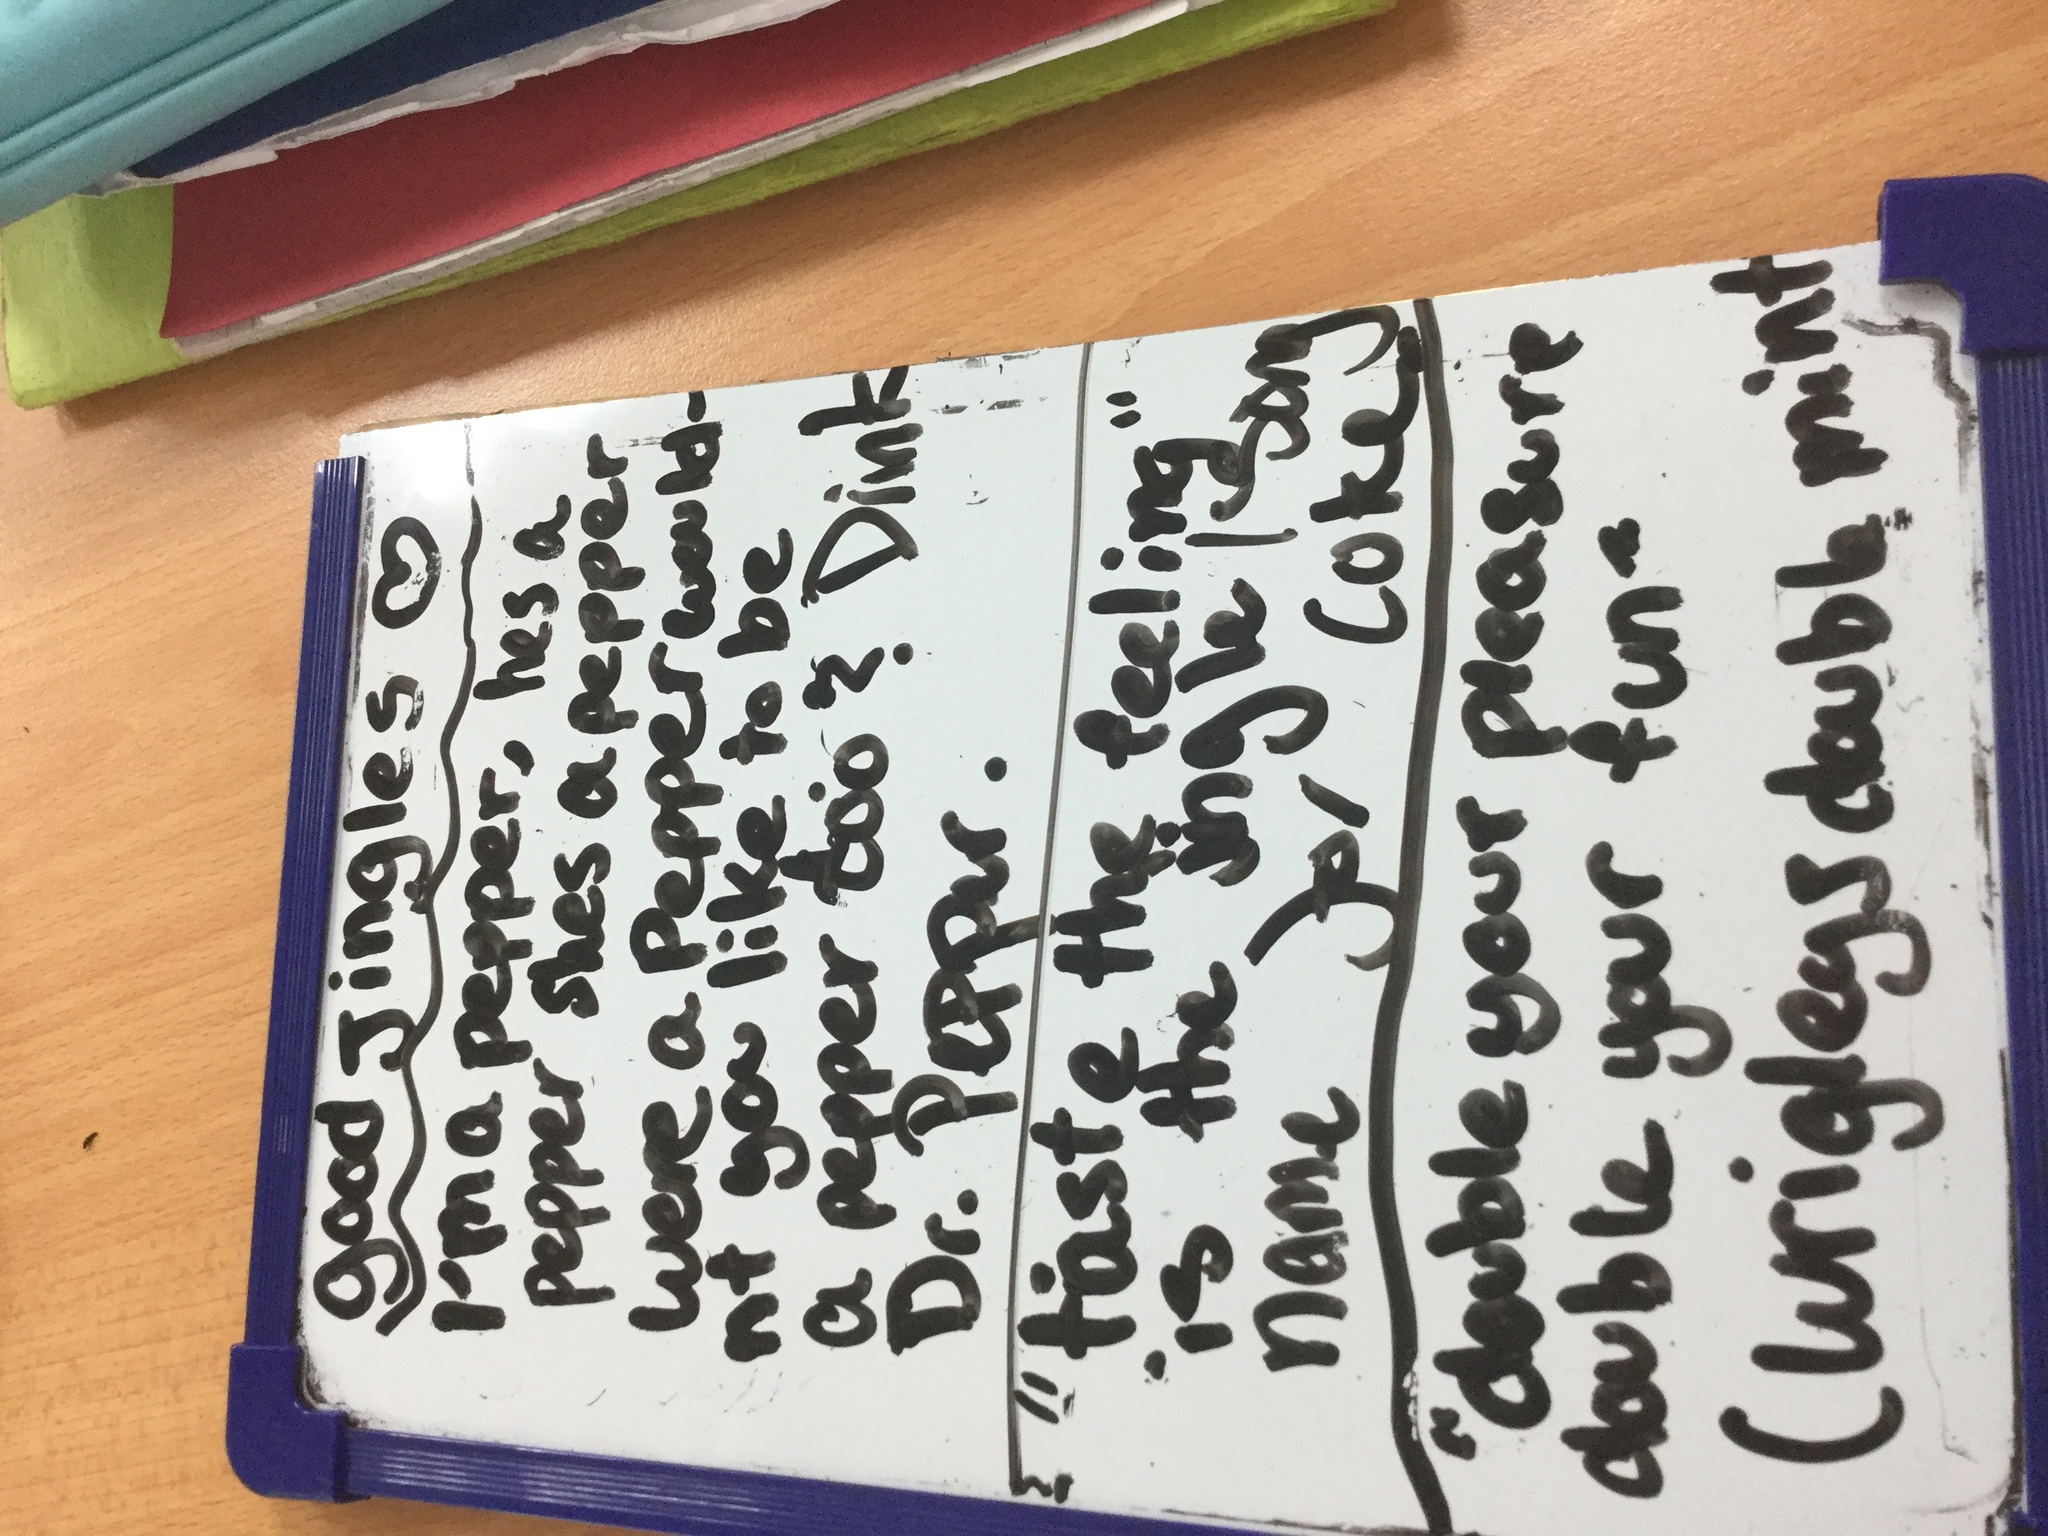 good Jingles ♡
I'm a pepper, hes a
pepper shes a pepper
were a Pepper would-
nt you like to be
a pepper too? Dink
Dr. Pepper.
"taste the feeling"
is the jingle / song
name for Coke
"double your pleasure
double your fun"
(wrigleys doubl mint